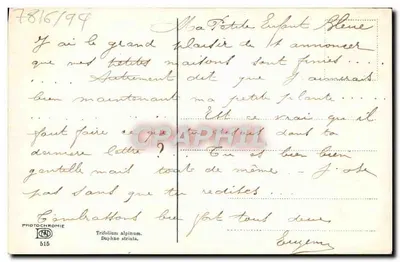 78/6/94
Ma Petite Enfant Bleue
J'ai le grand plaisir de t'annoncer
que nos petites maisons sont finies...
.... Autrement dit que j'aimerais
bien maintenant ma petite plante....
Est ce vrai que il
faut faire ce que tu dans ta
dernière lettre ? Tu es bien bien
gentille mais tout de même.. J'ose
pas sans que tu redises...
T'embrassons bien fort tous deux
Eugène
CPAPHIL.COM
PHOTOCHROMIE
515
Trifolium alpinum.
Daphne striata.